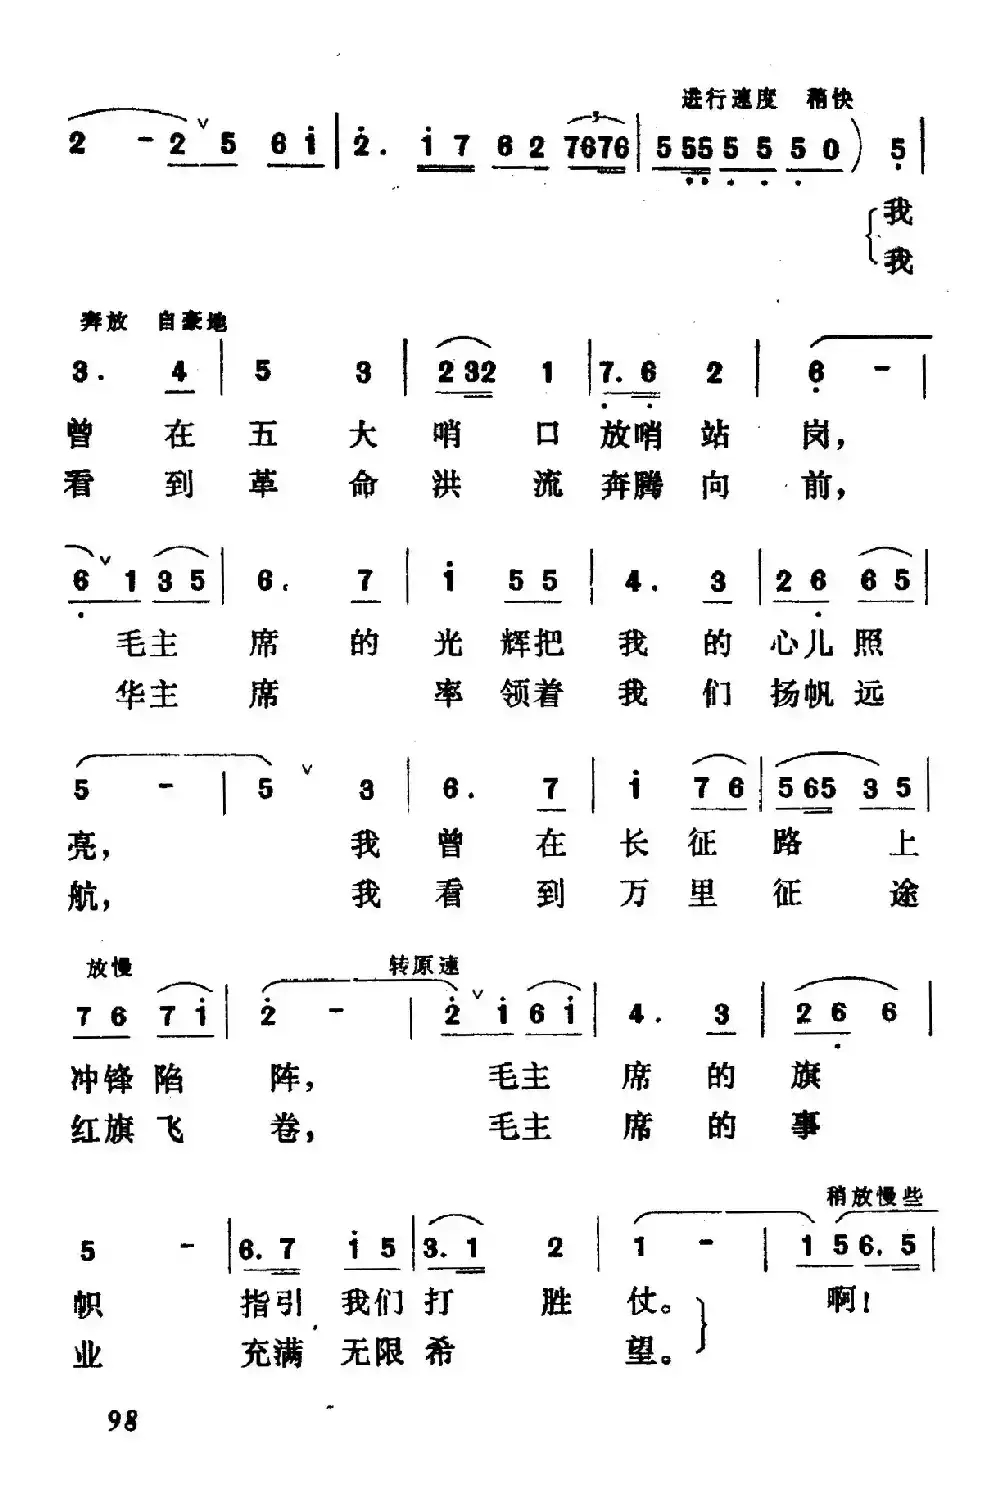 进行速度 稍快
2 - 2 5 6 1 | 2. 1 7 6 2 7676 | 5 55 5 5 5 0 ) 5 |
3
我
我
奔放 自豪地
3. 4 | 5 3 | 2 32 1 | 7. 6 2 | 6 - |
曾 在 五 大 哨 口 放哨 站 岗，
看 到 革 命 洪 流 奔腾 向 前，
6 1 3 5 | 6. 7 | 1 5 5 | 4. 3 | 2 6 6 5 |
毛主 席 的 光 辉把 我 的 心儿 照
华主 席 率 领着 我 们 扬帆 远
5 - | 5 3 | 6. 7 | 1 7 6 | 5 65 3 5 |
亮， 我 曾 在 长 征 路 上
航， 我 看 到 万 里 征 途
放慢 转原速
7 6 7 1 | 2 - | 2 1 6 1 | 4. 3 | 2 6 6 |
冲锋 陷 阵， 毛主 席 的 旗
红旗 飞 卷， 毛主 席 的 事
稍放慢些
5 - | 6. 7 1 5 | 3. 1 2 | 1 - | 1 5 6. 5 |
帜 指引 我们 打 胜 仗。 啊！
业 充满 无限 希 望。
98